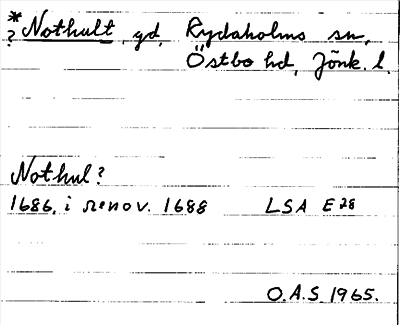 *
? Nothult, gd, Rydaholms sn,
Östbo hd, Jönk. l.
Nothul?
1686, i renov. 1688 LSA E28
O.A.S. 1965.